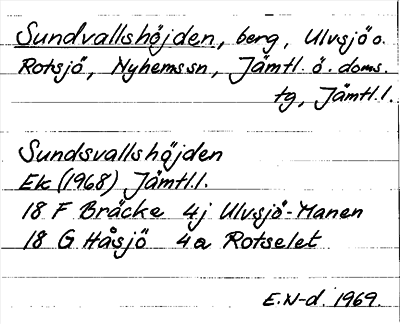 Sundvallshöjden, berg, Ulvsjö o.
Rotsjö, Nyhemssn, Jämtl. ö. doms.
tg, Jämtl.l.
Sundsvallshöjden
Ek (1968) Jämtl.l.
18 F Bräcke 4j Ulvsjö-Manen
18 G Håsjö 4a Rotselet
E.N-d. 1969.